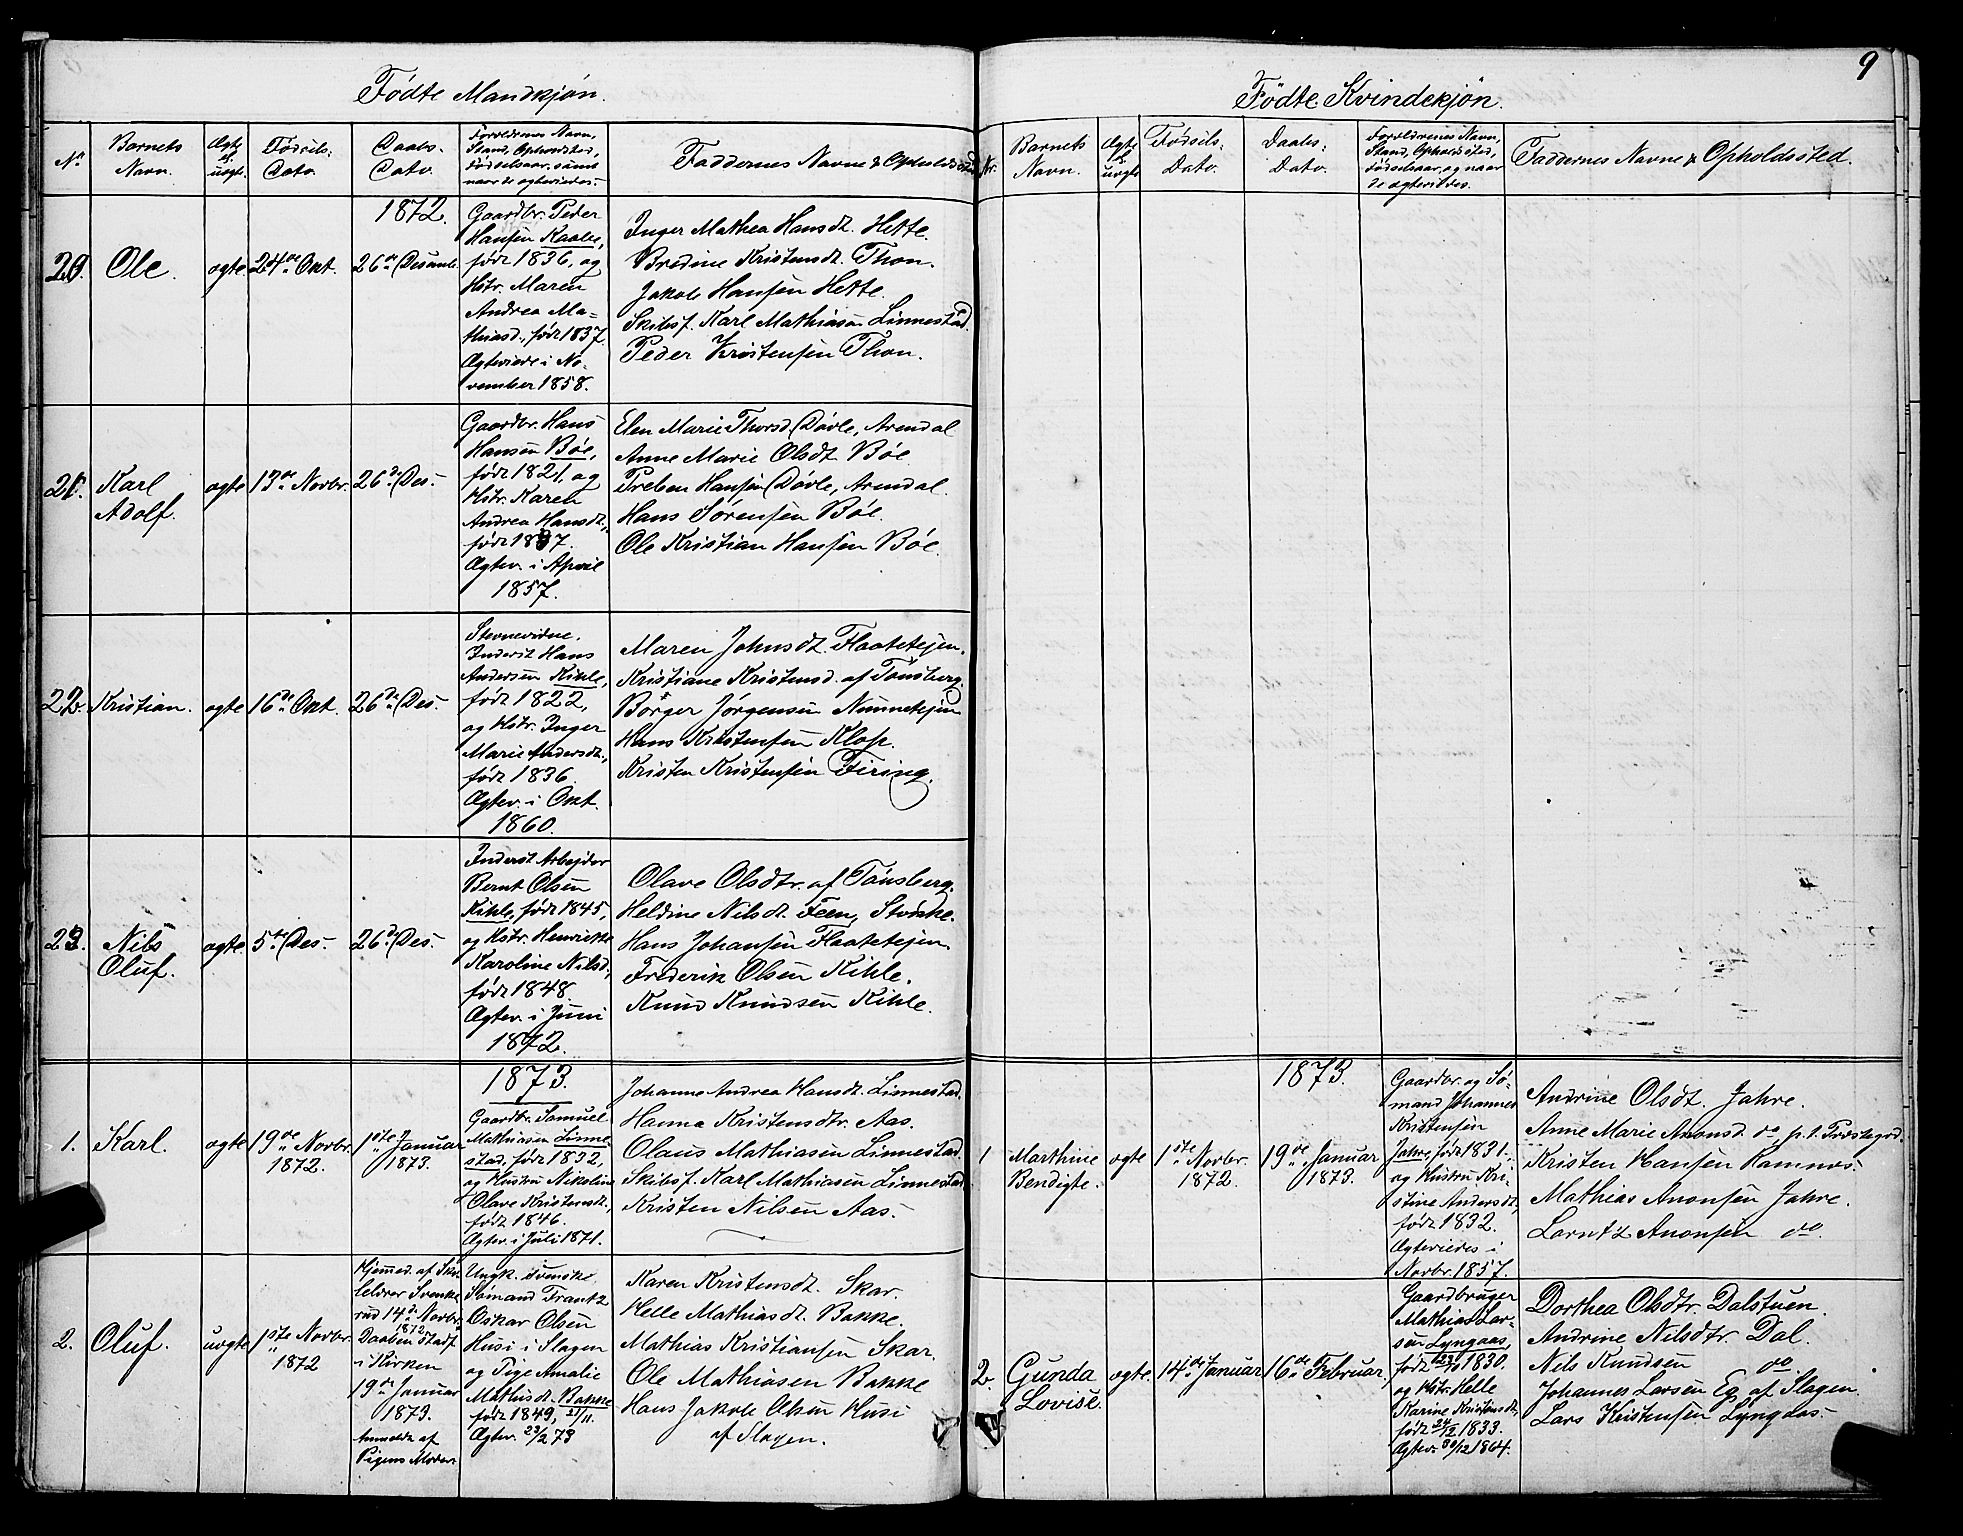 9
Fødte Mandkjøn.
No
Barnets Navn.
Ægte el. uægte
Fødsels: Dato.
Daabs: Dato.
Forældrenes Navn,
Stand, Opholdssted,
Fødselsaar, samt
naar de ægteviedes.
Faddernes Navne & Opholdssted
1872.
20.
Ole.
ægte
24de Okt.
26de Desemb.
Gaardbr. Peder
Hansen Kaable,
født 1836, og
Hstr. Maren
Andrea Ma-
thiasd., født 1837.
Ægteviede i No-
vember 1858.
Inger Mathea Hansdt. Hette.
Bredine Kristensdt. Thon.
Jakob Hansen Hette.
Skibsf. Karl Mathiasen Linnestad.
Peder Kristensen Thon.
21.
Karl
Adolf.
ægte
13de Novbr.
26de Des.
Gaardbr. Hans
Hansen Bøe,
født 1821, og
Hstr. Karen
Andrea Hansdt.,
født 1837.
Ægtev. i April
1857.
Elen Marie Thorsd. Døvle, Arendal
Anne Marie Olsdt. Bøe.
Preben Hansen Døvle, Arendal.
Hans Sørensen Bøe.
Ole Kristian Hansen Bøe.
22.
Kristian.
ægte
16de Okt.
26de Des.
Stevnevidne,
Inderst Hans
Andersen Kihle,
født 1822,
og Hstr. Inger
Marie Andersdt.,
født 1836.
Ægtev. i Okt.
1860.
Maren Johnsdt. Flaatetejen.
Kristiane Kristensd. af Tønsberg.
Børger Jørgensen Nunnetejen
Hans Kristensen Klop.
Kristen Kristensen Firing.
23.
Nils
Oluf.
ægte
5te Des.
26de Des.
Inderst Arbejder
Bernt Olsen
Kihle, født 1845,
og Hstr. Henrikke
Karoline Nilsd.,
født 1848.
Ægtev. i Juni
1872.
Olave Olsdtr. af Tønsberg.
Heldine Nilsdt. Feen, Stokke.
Hans Johansen Flaatetejen.
Frederik Olsen Kihle.
Knud Knudsen Kihle.
1873.
1.
Karl.
ægte
19de Novbr.
1872.
1ste Januar
1873.
Gaardbr. Samuel
Mathiasen Linne-
stad, født 1832,
og Hustru Nikoline
Olave Kristensdt.,
født 1846.
Ægtev. i Juli 1871.
Johanne Andrea Hansdt. Linnestad.
Hanna Kristensdtr. Aas.
Olaus Mathiasen Linnestad.
Skibsf. Karl Mathiasen Linnestad.
Kristen Nilsen Aas.
2.
Oluf.
uægte
1ste Novbr.
1872
Hjemmed. af Sko-
lelærer Svenke-
rud 14de Novbr.
1872.
Daaben stadf.
i Kirken
19de Januar
1873.
Anmeldt af
Pigens Moder.
Ungk. svenske
Sømand Frantz
Oskar Olsen
Husi i Slagen
og Pige Amalie
Mathisdt. Bakke
født 1849, 21/11.
Ægtev. 23/2 73
Karen Kristensdt. Skar.
Helle Mathiasdt. Bakke.
Mathias Kristiansen Skar.
Ole Mathiasen Bakke
Hans Jakob Olsen Husi
af Slagen.
Fødte Kvindekjøn.
Nr.
Barnets Navn.
Ægte el. uægte
Fødsels: Dato.
Daabs: Dato.
Forældrenes Navn,
Stand, Opholdssted,
Fødselsaar, og naar
de ægteviedes.
Faddernes Navne & Opholdssted.
1873.
1
Marthine
Bendigte.
ægte
1ste Novbr.
1872.
19de Januar
1873.
Gaardbr. og Sø-
mand Johannes
Kristensen
Jahre, født 1831.,
og Hustru Kri-
stine Andersdt.,
født 1832.
Ægteviedes i
Novbr. 1857.
Andrine Olsdt. Jahre.
Anne Marie Anonsd. do, p. t. Præstegrd.
Kristen Hansen Ramnes.
Mathias Anonsen Jahre.
Larntz Anonsen do.
2.
Gunda
Lovise.
ægte.
14de Januar
16de Februar
Gaardbruger
Mathias Lar-
sen Lyngaas,
født 1830.
og Hstr. Helle
Karine Kristensdt.,
født 24/12 1833.
Ægtev. 30/12 1864.
Dorthea Olsdtr. Dalstuen.
Andrine Nilsdtr. Dal.
Nils Knudsen do
Johannes Larsen Eg af Slagen.
Lars Kristensen Lyngaas.